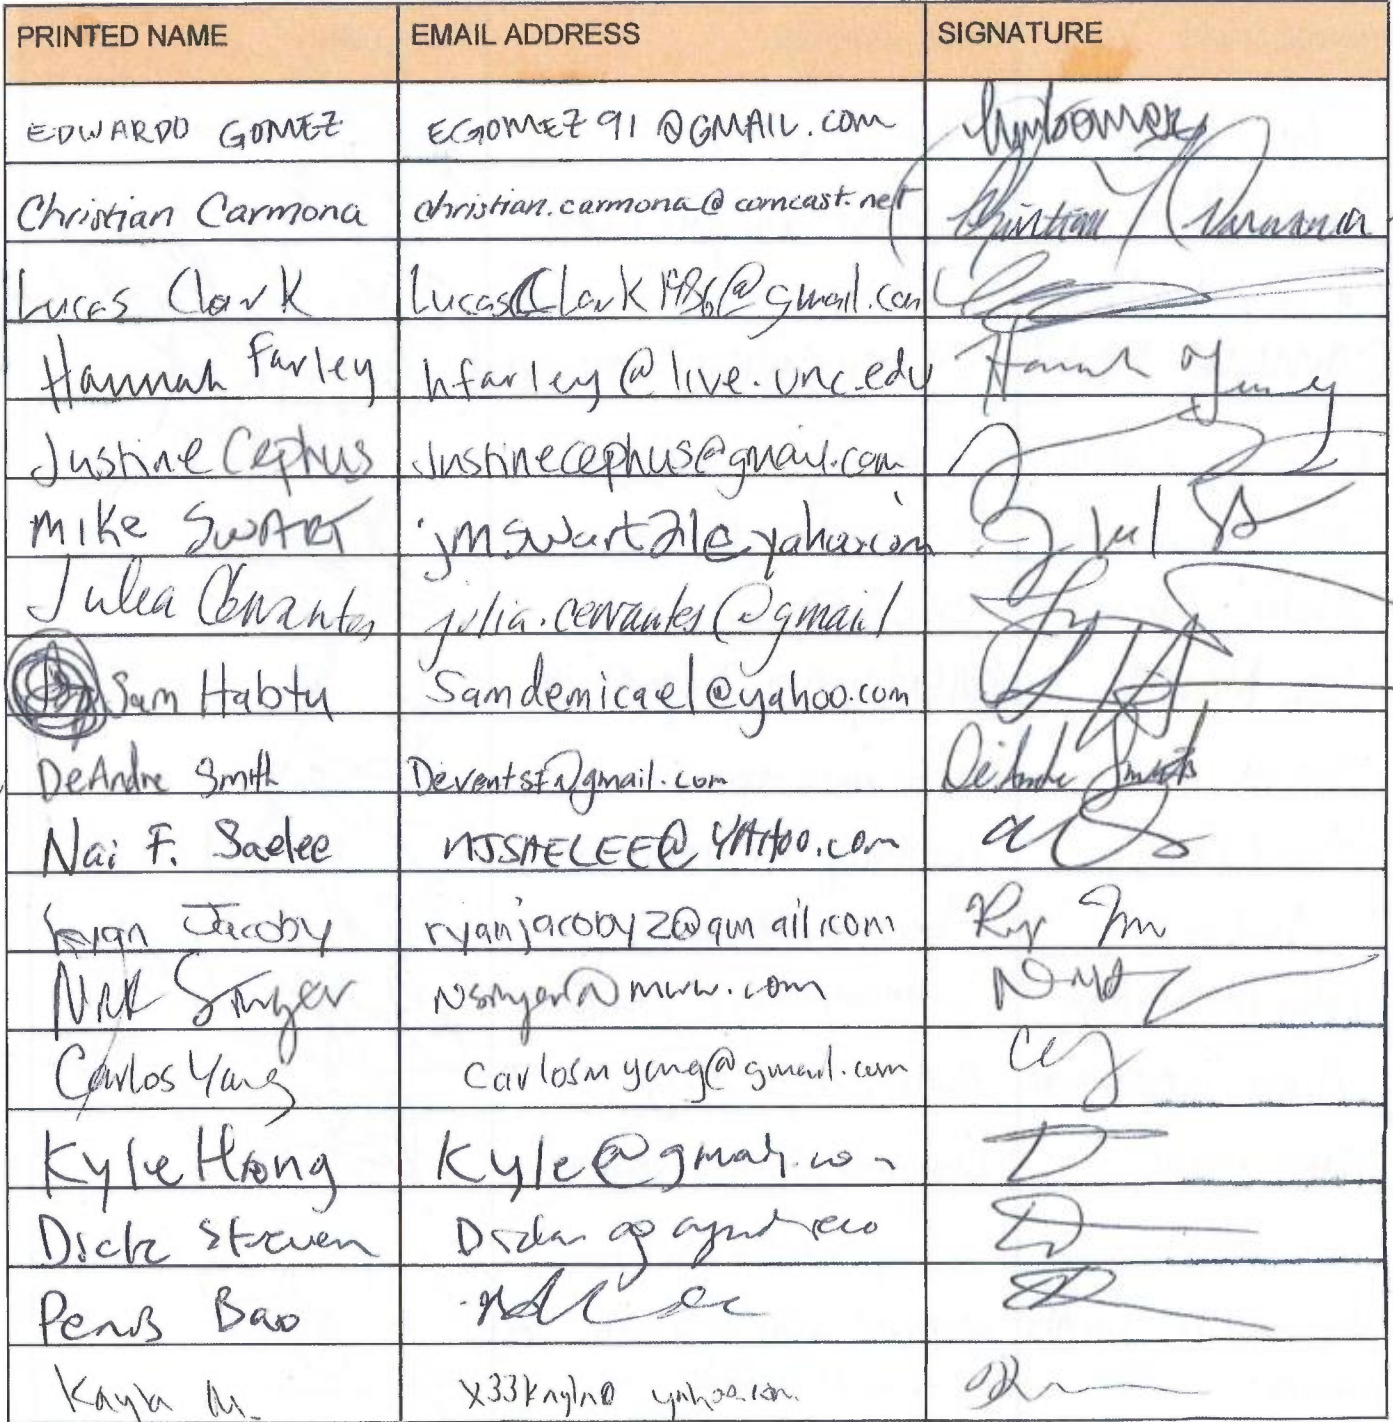 PRINTED NAME EMAIL ADDRESS SIGNATURE
EDWARDO GOMEZ EGOMEZ91@GMAIL.COM
Christian Carmona christian.carmona@comcast.net Christian Carmona
Lucas Clark LucasClark1986@gmail.com
Hannah Farley hfarley@live.unc.edu Hannah
Justine Cephus Justinecephus@gmail.com
MIKE SWART jmswart21@yahoo.com
Julia Cervantes julia.cervantes@gmail
Sam Habtu Samdemicael@yahoo.com
DeAndre Smith DeAndre Smith
Nai F. Saelee NJSAELEE@YAHOO.com
Ryan Jacoby ryanjacobyz@gmail.com
Nick Singer Nsinger@mww.com
Carlos Yang Carlosmyang@gmail.com
Kyle Hong Kyle@gmail.com
Dick Steven
Bao
Kayla M. x33kayla@yahoo.com